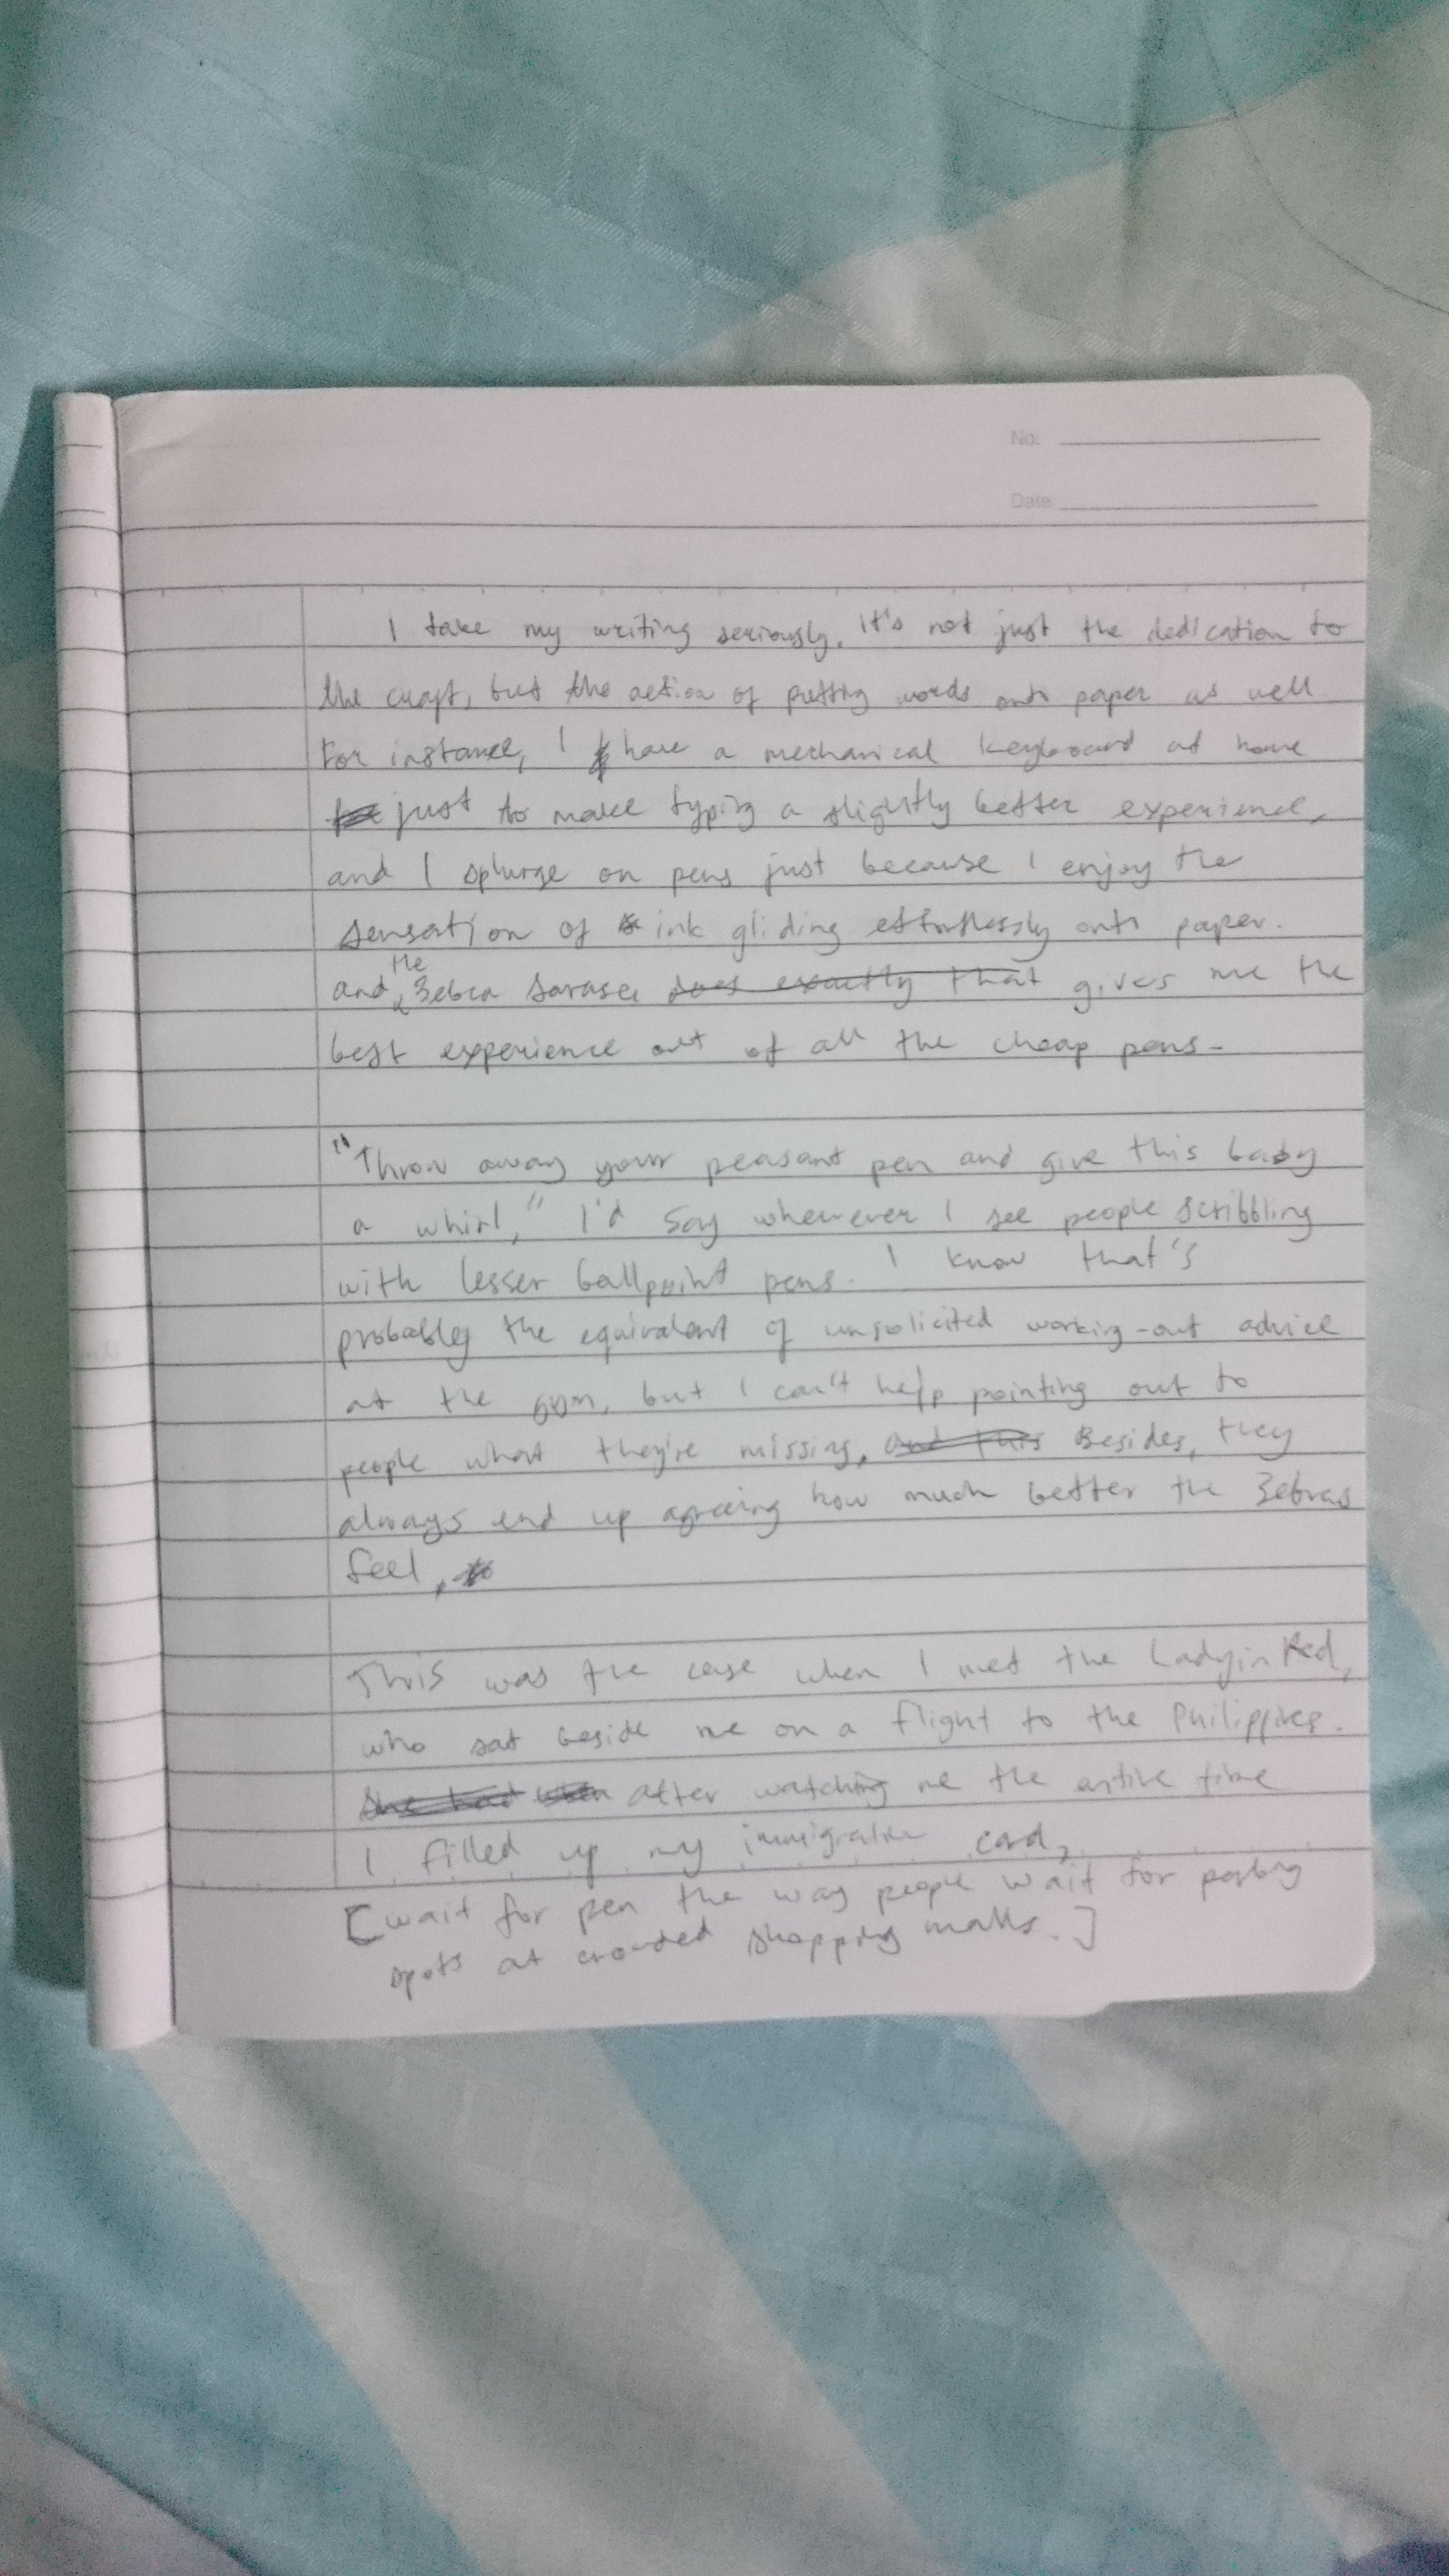 No:
Date:
I take my writing seriously. It's not just the dedication to
the craft, but the action of putting words onto paper as well
For instance, I have a mechanical keyboard at home
just to make typing a slightly better experience,
and I splurge on pens just because I enjoy the
sensation of ink gliding effortlessly onto paper.
and the Zebra Sarasa does exactly that gives me the
best experience out of all the cheap pens.
"Throw away your peasant pen and give this baby
a whirl," I'd say whenever I see people scribbling
with lesser ballpoint pens. I know that's
probably the equivalent of unsolicited working-out advice
at the gym, but I can't help pointing out to
people what they're missing. and this Besides, they
always end up agreeing how much better the Zebras
feel.
This was the case when I met the Lady in Red,
who sat beside me on a flight to the Philippines.
She had when after watching me the entire time
I filled up my immigration card,
[wait for pen the way people wait for parking
spots at crowded shopping malls.]